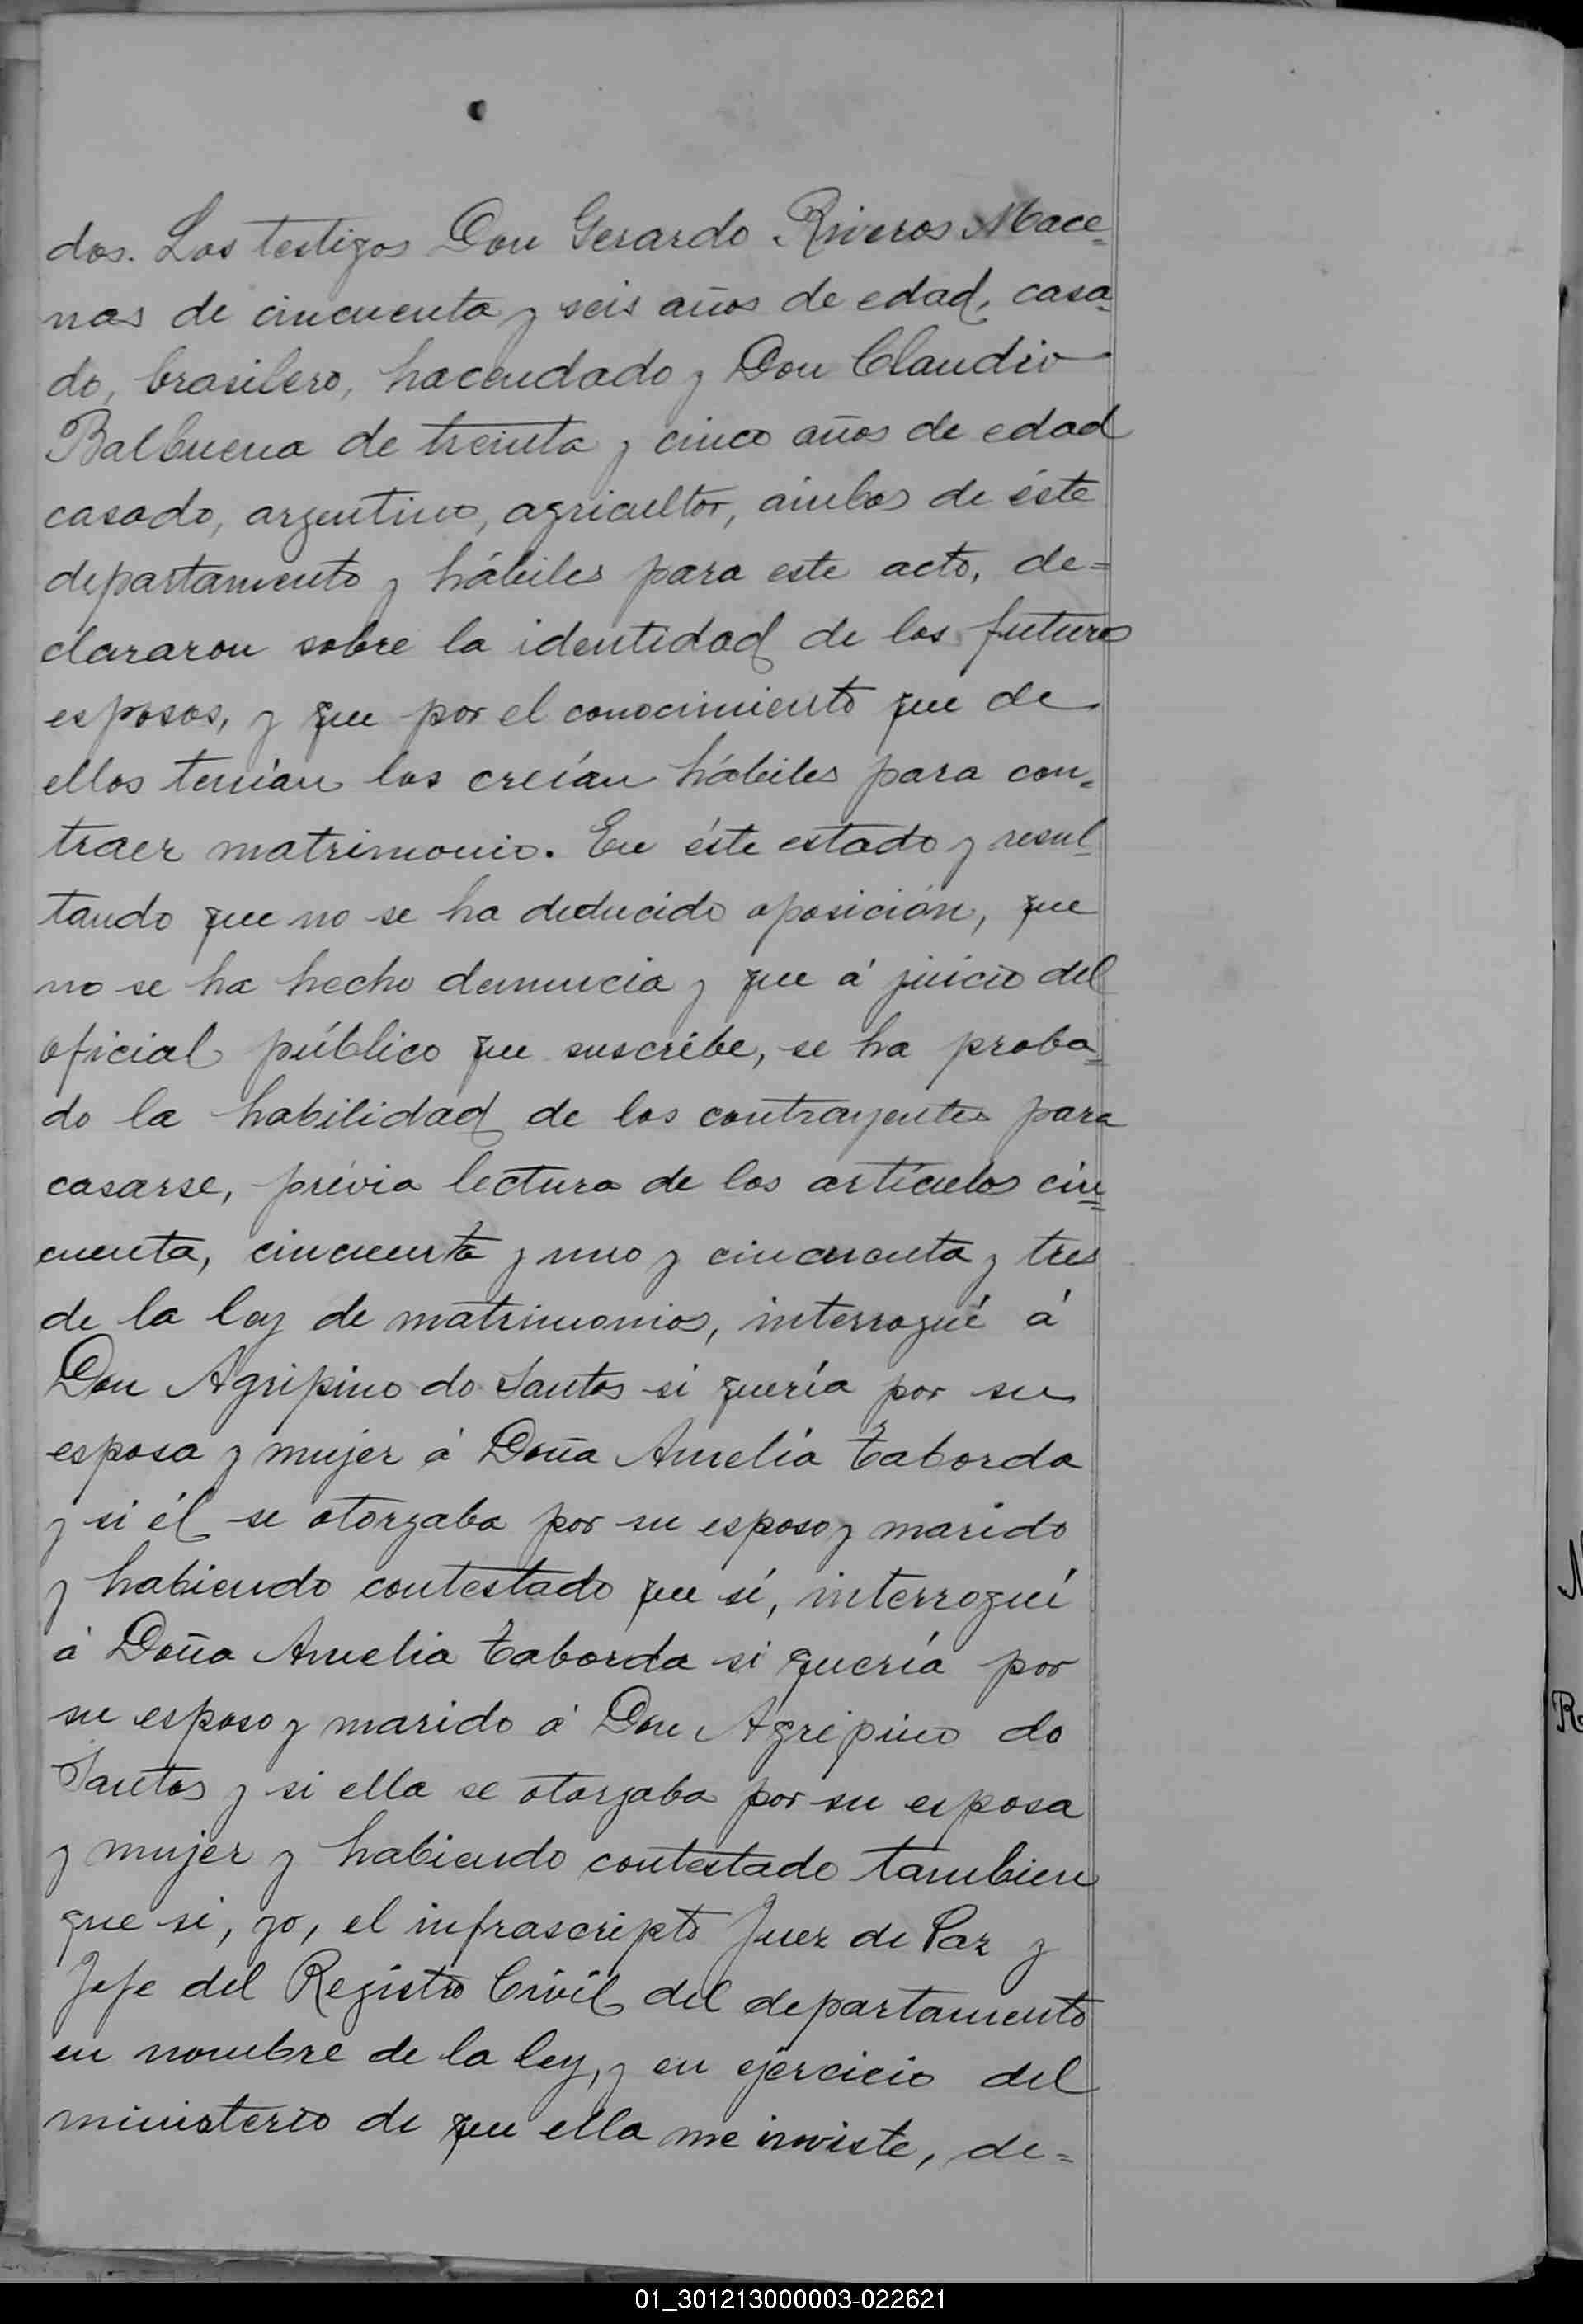 dos. Los testigos Don Gerardo Riveros Mace=
nas de cincuenta y seis años de edad, casa=
do, brasilero, hacendado y Don Claudio
Balbuena de treinta y cinco años de edad
casado, argentino, agricultor, ambos de éste
departamento y hábiles para este acto, de=
clararon sobre la identidad de los futuros
esposos, y que por el conocimiento que de
ellos tenían los creían hábiles para con=
traer matrimonio. En éste estado y resul=
tando que no se ha deducido oposición, que
no se ha hecho denuncia y que á juicio del
oficial público que suscribe, se ha proba=
do la habilidad de los contrayentes para
casarse, prévia lectura de los artículos cin=
cuenta, cincuenta y uno y cincuenta y tres
de la ley de matrimonios, interrogué á
Don Agripino do Santos si quería por su
esposa y mujer á Doña Amelia Taborda
y si él se otorgaba por su esposo y marido
y habiendo contestado que sí, interrogué
á Doña Amelia Taborda si quería por
su esposo y marido á Don Agripino do
Santos y si ella se otorgaba por su esposa
y mujer y habiendo contestado tambien
que si, yo, el infrascripto Juez de Paz y
Jefe del Registro Civil del departamento
en nombre de la ley, y en ejercicio del
ministerio de que ella me inviste, de=
R
01_301213000003-022621